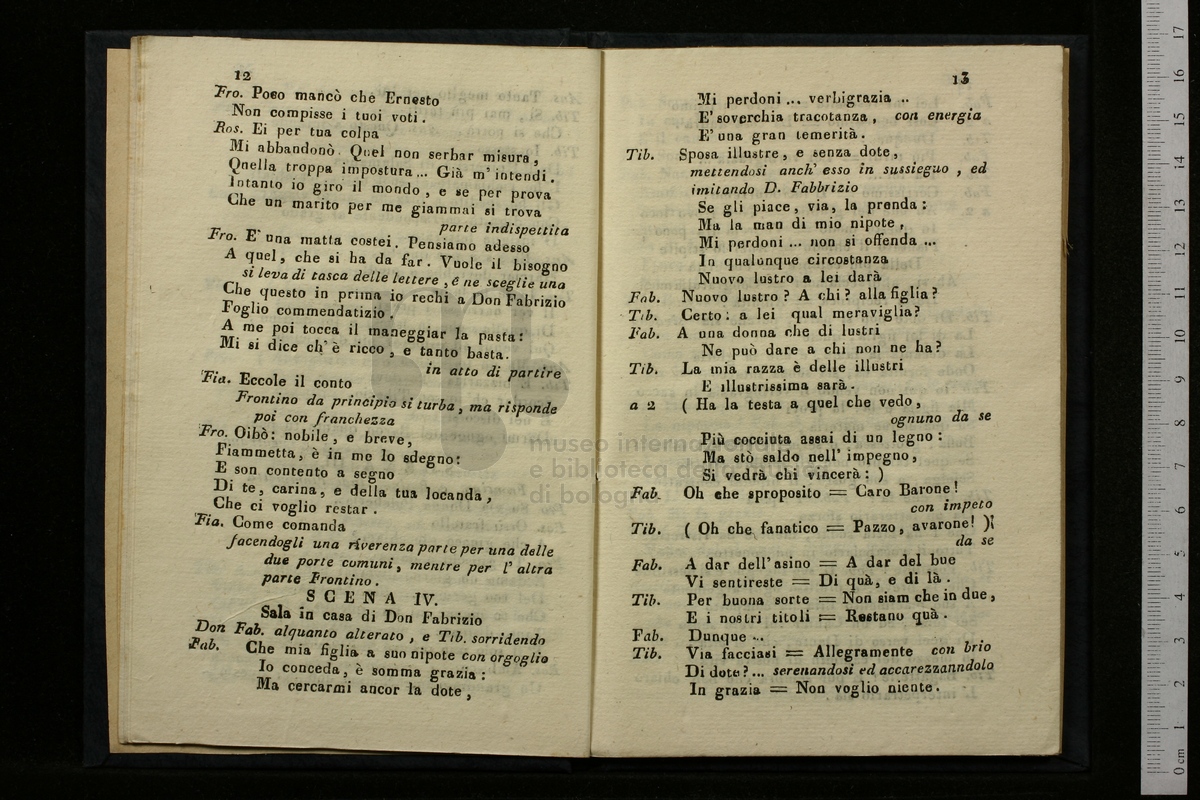 12
Fro. Poco mancò che Ernesto
Non compisse i tuoi voti.
Ros. Ei per tua colpa
Mi abbandonò. Quel non serbar misura,
Quella troppa impostura... Già m' intendi.
Intanto io giro il mondo, e se per prova
Che un marito per me giammai si trova
parte indispettita
Fro. E' una matta costei. Pensiamo adesso
A quel, che si ha da far. Vuole il bisogno
si leva di tasca delle lettere, e ne sceglie una
Che questo in prima io rechi a Don Fabrizio
Foglio commendatizio.
A me poi tocca il maneggiar la pasta:
Mi si dice ch' è ricco, e tanto basta.
in atto di partire
Fia. Eccole il conto
Frontino da principio si turba, ma risponde
poi con franchezza
Fro. Oibò: nobile, e breve,
Fiammetta, è in me lo sdegno:
E son contento a segno
Di te, carina, e della tua locanda,
Che ci voglio restar.
Fia. Come comanda
facendogli una riverenza parte per una delle
due porte comuni, mentre per l' altra
parte Frontino.
SCENA IV.
Sala in casa di Don Fabrizio
Don Fab. alquanto alterato, e Tib. sorridendo
Fab. Che mia figlia a suo nipote con orgoglio
Io conceda, è somma grazia:
Ma cercarmi ancor la dote,
13
Mi perdoni... verbigrazia ..
E' soverchia tracotanza, con energia
E' una gran temerità.
Tib. Sposa illustre, e senza dote,
mettendosi anch' esso in sussieguo, ed
imitando D. Fabbrizio
Se gli piace, via, la prenda:
Ma la man di mio nipote,
Mi perdoni... non si offenda ...
In qualunque circostanza
Nuovo lustro a lei darà
Fab. Nuovo lustro? A chi? alla figlia?
Tib. Certo: a lei qual meraviglia?
Fab. A una donna che di lustri
Ne può dare a chi non ne ha?
Tib. La mia razza è delle illustri
E illustrissima sarà.
a 2 ( Ha la testa a quel che vedo,
ognuno da se
Più cocciuta assai di un legno:
Ma stò saldo nell' impegno,
Si vedrà chi vincerà: )
Fab. Oh che sproposito = Caro Barone!
con impeto
Tib. ( Oh che fanatico = Pazzo, avarone! )
da se
Fab. A dar dell' asino = A dar del bue
Vi sentireste = Di quà, e di là.
Tib. Per buona sorte = Non siam che in due,
E i nostri titoli = Restano quà.
Fab. Dunque ...
Tib. Via facciasi = Allegramente con brio
Di dote?... serenandosi ed accarezzanndolo
In grazia = Non voglio niente.
museo internazionale
e biblioteca della musica
di bologna
0 cm 1 2 3 4 5 6 7 8 9 10 11 12 13 14 15 16 17